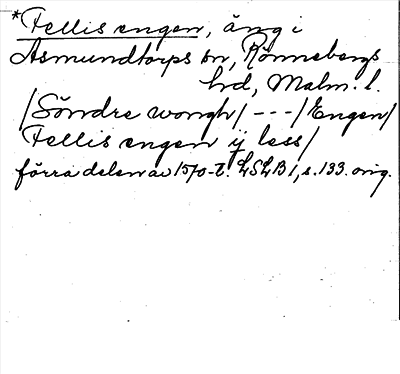 *Fellis engen, äng i
Asmundtorps sn, Rönnebergs
hrd, Malm. l.
/Söndre wongh/ --- /Engen/
Fellis engen ij less/
förra delen av 1570-t. LSLB 1, s. 133. orig.